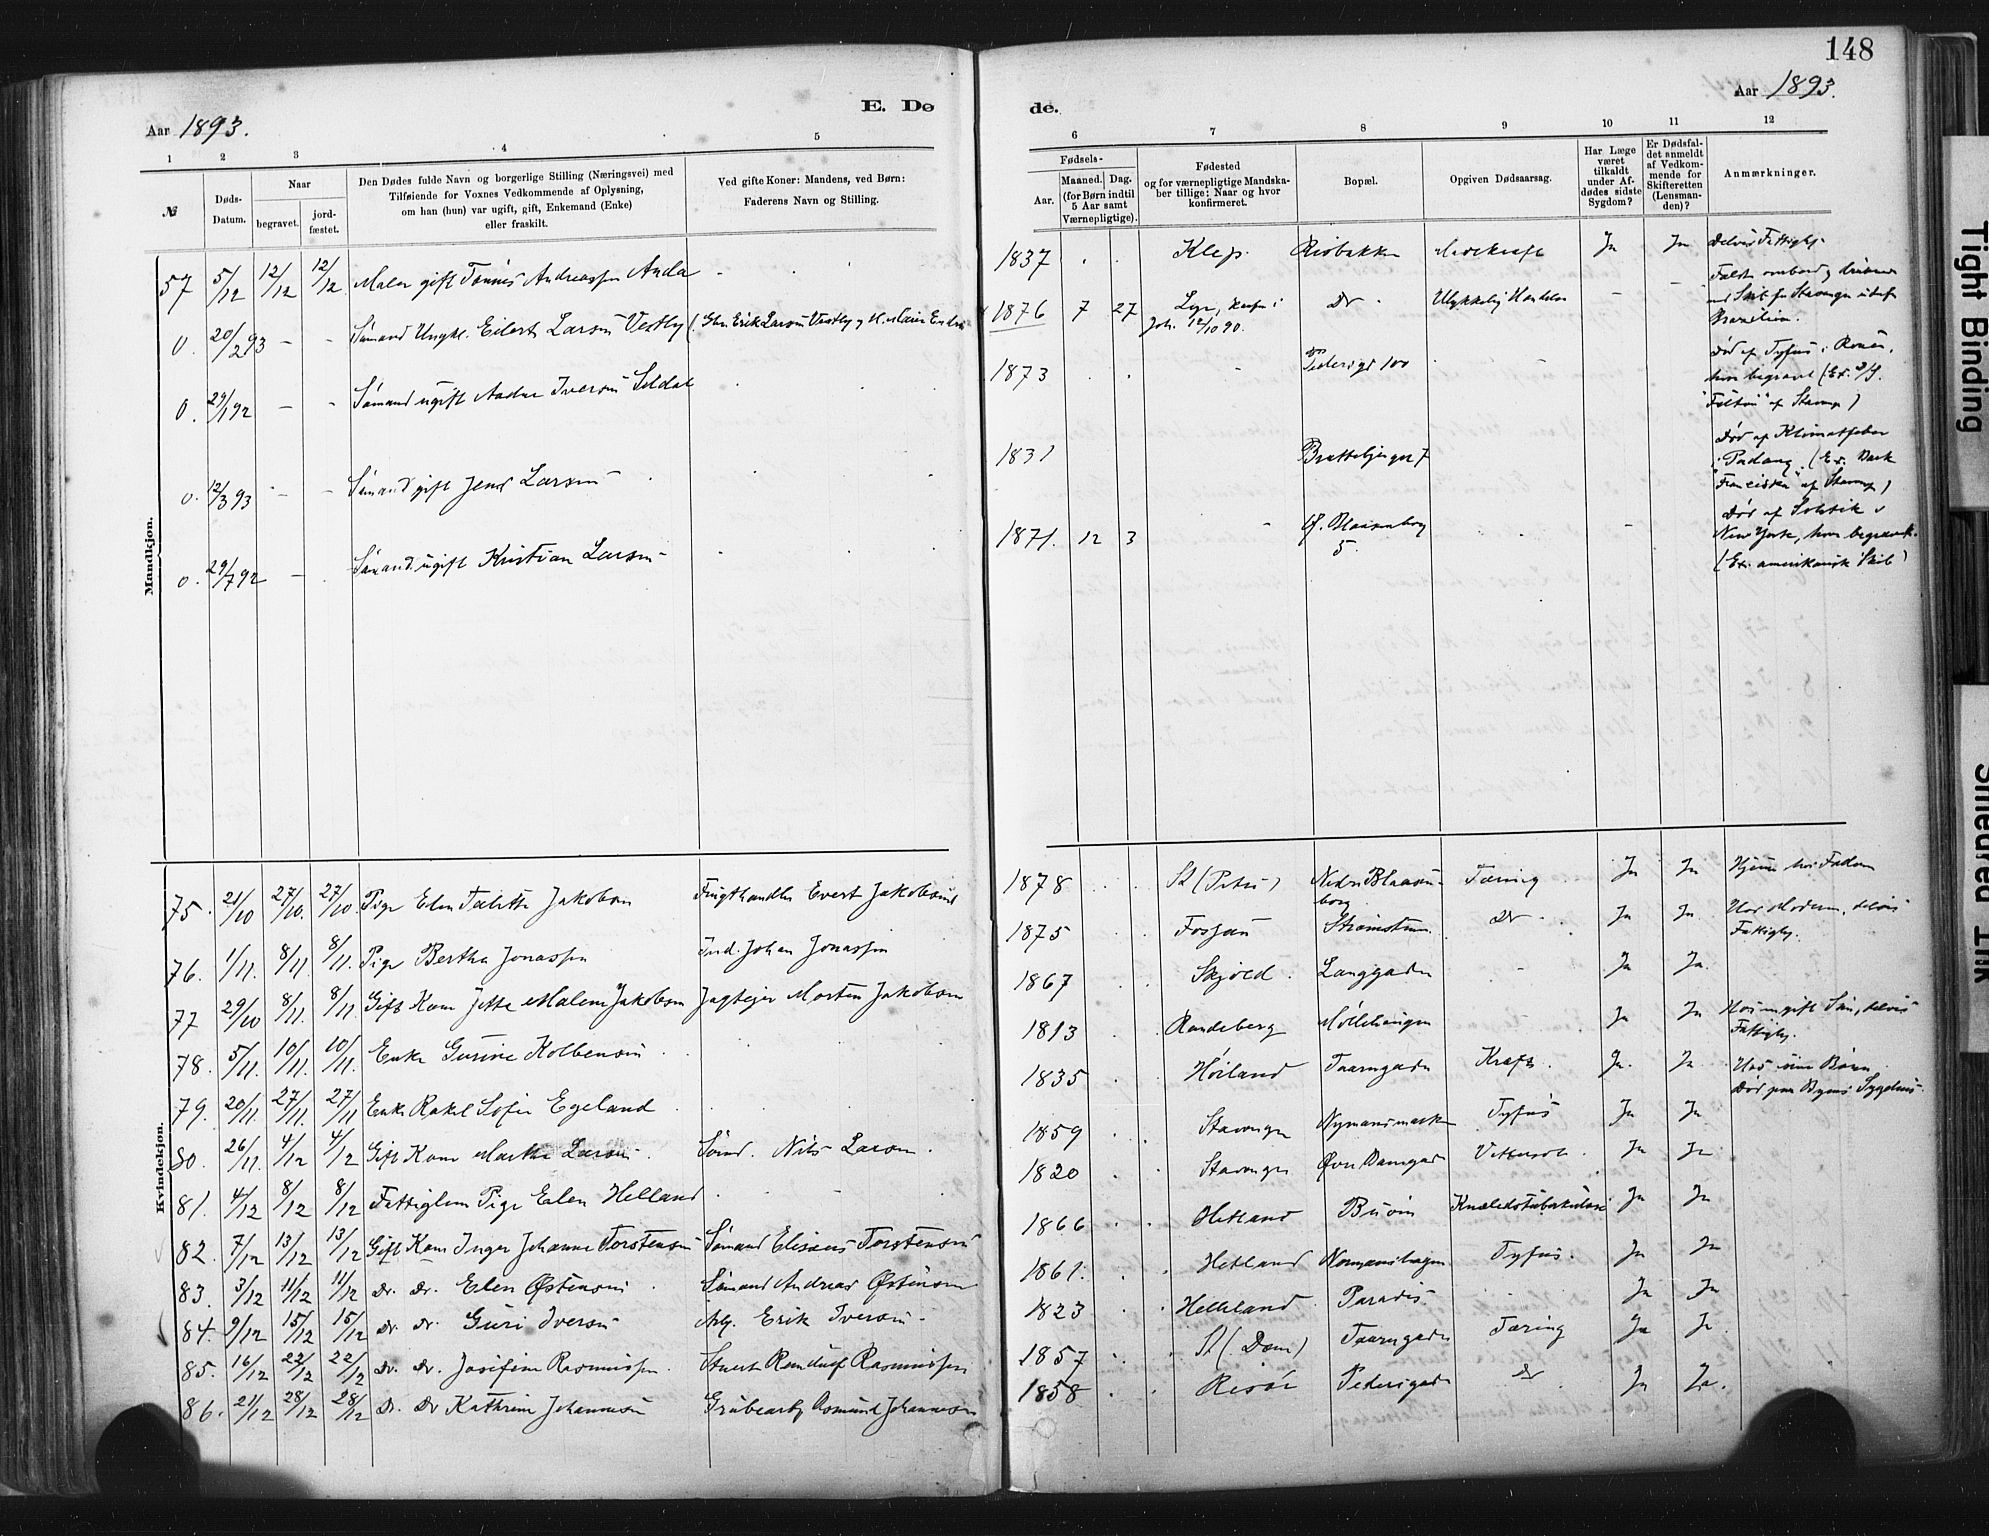 148
Aar 1893.
E. Dø
de.
Aar 1893.
1 2 3 4 5 6 7 8 9 10 11 12
№
Døds-Datum.
Naar
begravet.
jord-fæstet.
Den Dødes fulde Navn og borgerlige Stilling (Næringsvei) med
Tilføiende for Voxnes Vedkommende af Oplysning,
om han (hun) var ugift, gift, Enkemand (Enke)
eller fraskilt.
Ved gifte Koner: Mandens, ved Børn:
Faderens Navn og Stilling.
Fødsels-
Aar.
Maaned. Dag.
(for Børn indtil
5 Aar samt
Værnepligtige).
Fødested
og for værnepligtige Mandska-
ber tillige: Naar og hvor
konfirmeret.
Bopæl.
Opgiven Dødsaarsag.
Har Læge
været
tilkaldt
under Af-
dødes sidste
Sygdom?
Er Dødsfal-
det anmeldt
af Vedkom-
mende for
Skifteretten
(Lensman-
den)?
Anmærkninger.
Mandkjøn.
57 5/12 12/12 12/12 Maler gift Tønnes Andreassen Anda 1837 Klep. Risbakken Mavekræft Ja Ja Delvis Fattigh.
0. 20/2 93 Sømand Ungkl. Eilert Larsen Vestby 1876 7 27 Joh. 12/10 90. Do Ulykkelig Hændelse
Brasilien.
0. 29/1 92 Sømand ugift Iversen Seldal 1873 Pedersgd 100
Død af Tyfus i
hvor begravet
af Stavang.)
0. 12/3 93 Sømand gift Jens Larsen 1831 7
Død af Klimatfeber
i Padang. (Ex. Bark
"Franciska" af Stavang)
0. 29/7 92 Sømand ugift Kristian Larsen 1871. 12 3 Ø. Blaasenborg 5.
Død af Solstik i
New York, hvor begravet.
(Ex. amerikansk Skib)
Kvindekjøn.
75. 21/10 27/10. 27/10. Pige Elen Talette Jakobsen Frugthandler Evert Jakobsen 1878 St (Petri) Nedre Blaasenborg Tæring Ja Ja Hjem hos Fader
76. 1/11. 8/11. 8/11. Pige Bertha Jonassen Ind. Johan Jonassen 1875 Fossan Strømsteen. Do Ja Ja Hos Moderen, delvis Fattigh.
77 29/10 8/11. 8/11. Gift Kone Jette Malene Jakobsen Jagteier Morten Jakobsen 1867 Skjold. Langgaden Ja Ja.
78. 5/11. 10/11. 10/11. Enke Gurine Kolbensen 1813 Randeberg Møllehaugen Ja Ja Hos ugift Søn, delvis Fattigh.
79. 20/11. 27/11. 27/11 Enke Rakel Sofie Egeland 1835 Høiland Taarngaden Kræft. Ja. Ja. Hos sine Børn
Død paa Byens Sygehus.
80. 26/11. 4/12 4/12 Gift Kone Marthe Larsen Sømd. Nils Larsen. 1859 Stavanger Nymansmarken Tyfus Ja Ja.
81. 4/12 8/12 8/12 Fattiglem Pige Elen Helland 1820 Stavanger Øvre Damgade Vattersot. Ja Ja.
82. 7/12 13/12 13/12 Gift Kone Inger Johanne Torstensen Sømand Eliseus Torstensen 1866 Hetland Buøen Knæledstuberkulose Ja Ja
83. 3/12 11/12 11/12 Do. Do. Elen Østensen Sømand Andreas Østensen 1861. Hetland Normanshagen Tyfus. Ja Ja
84. 9/12 15/12 15/12 Do. Do. Guri Iversen Arb. Erik Iversen. 1823 Helleland Paradis. Ja Ja
85. 16/12 22/12 22/12 Do. Do. Josefine Rasmussen. Stuert Randulf Rasmussen 1857 St (Dom) Taarngaden Tæring Ja Ja.
86. 21/12 28/12 28/12 Do. Do Kathrine Johannesen Grubearb. Osmund Johannesen 1858 Risør Pedersgade Do Ja Ja.
Tight Binding